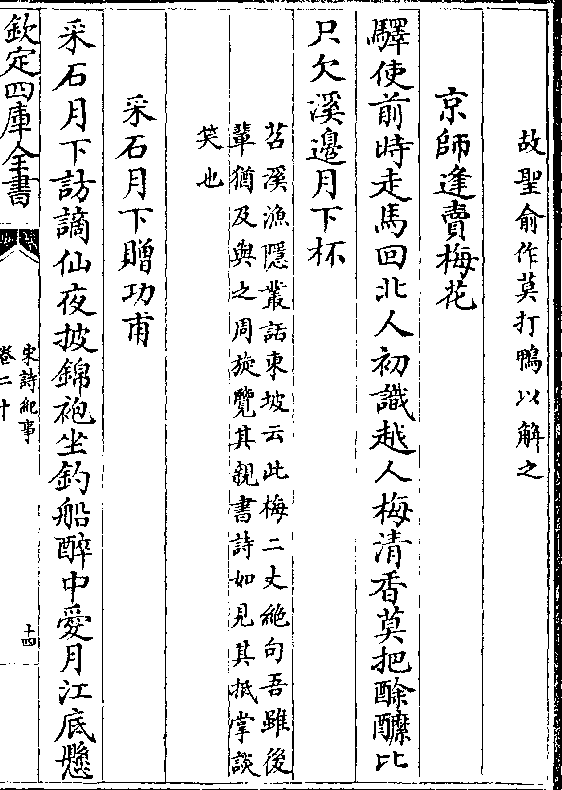 故聖俞作莫打鴨以解之
京師逢賣梅花
驛使前時走馬回北人初識越人梅清香莫把酴醾比
只欠溪邊月下杯
苕溪漁隱叢話東坡云此梅二丈絶句吾雖後
輩猶及與之周旋覽其親書詩如見其抵掌談
笑也
采石月下贈功甫
采石月下訪謫仙夜披錦袍坐釣船醉中愛月江底懸
欽定四庫全書
宋詩紀事
卷二十
十四